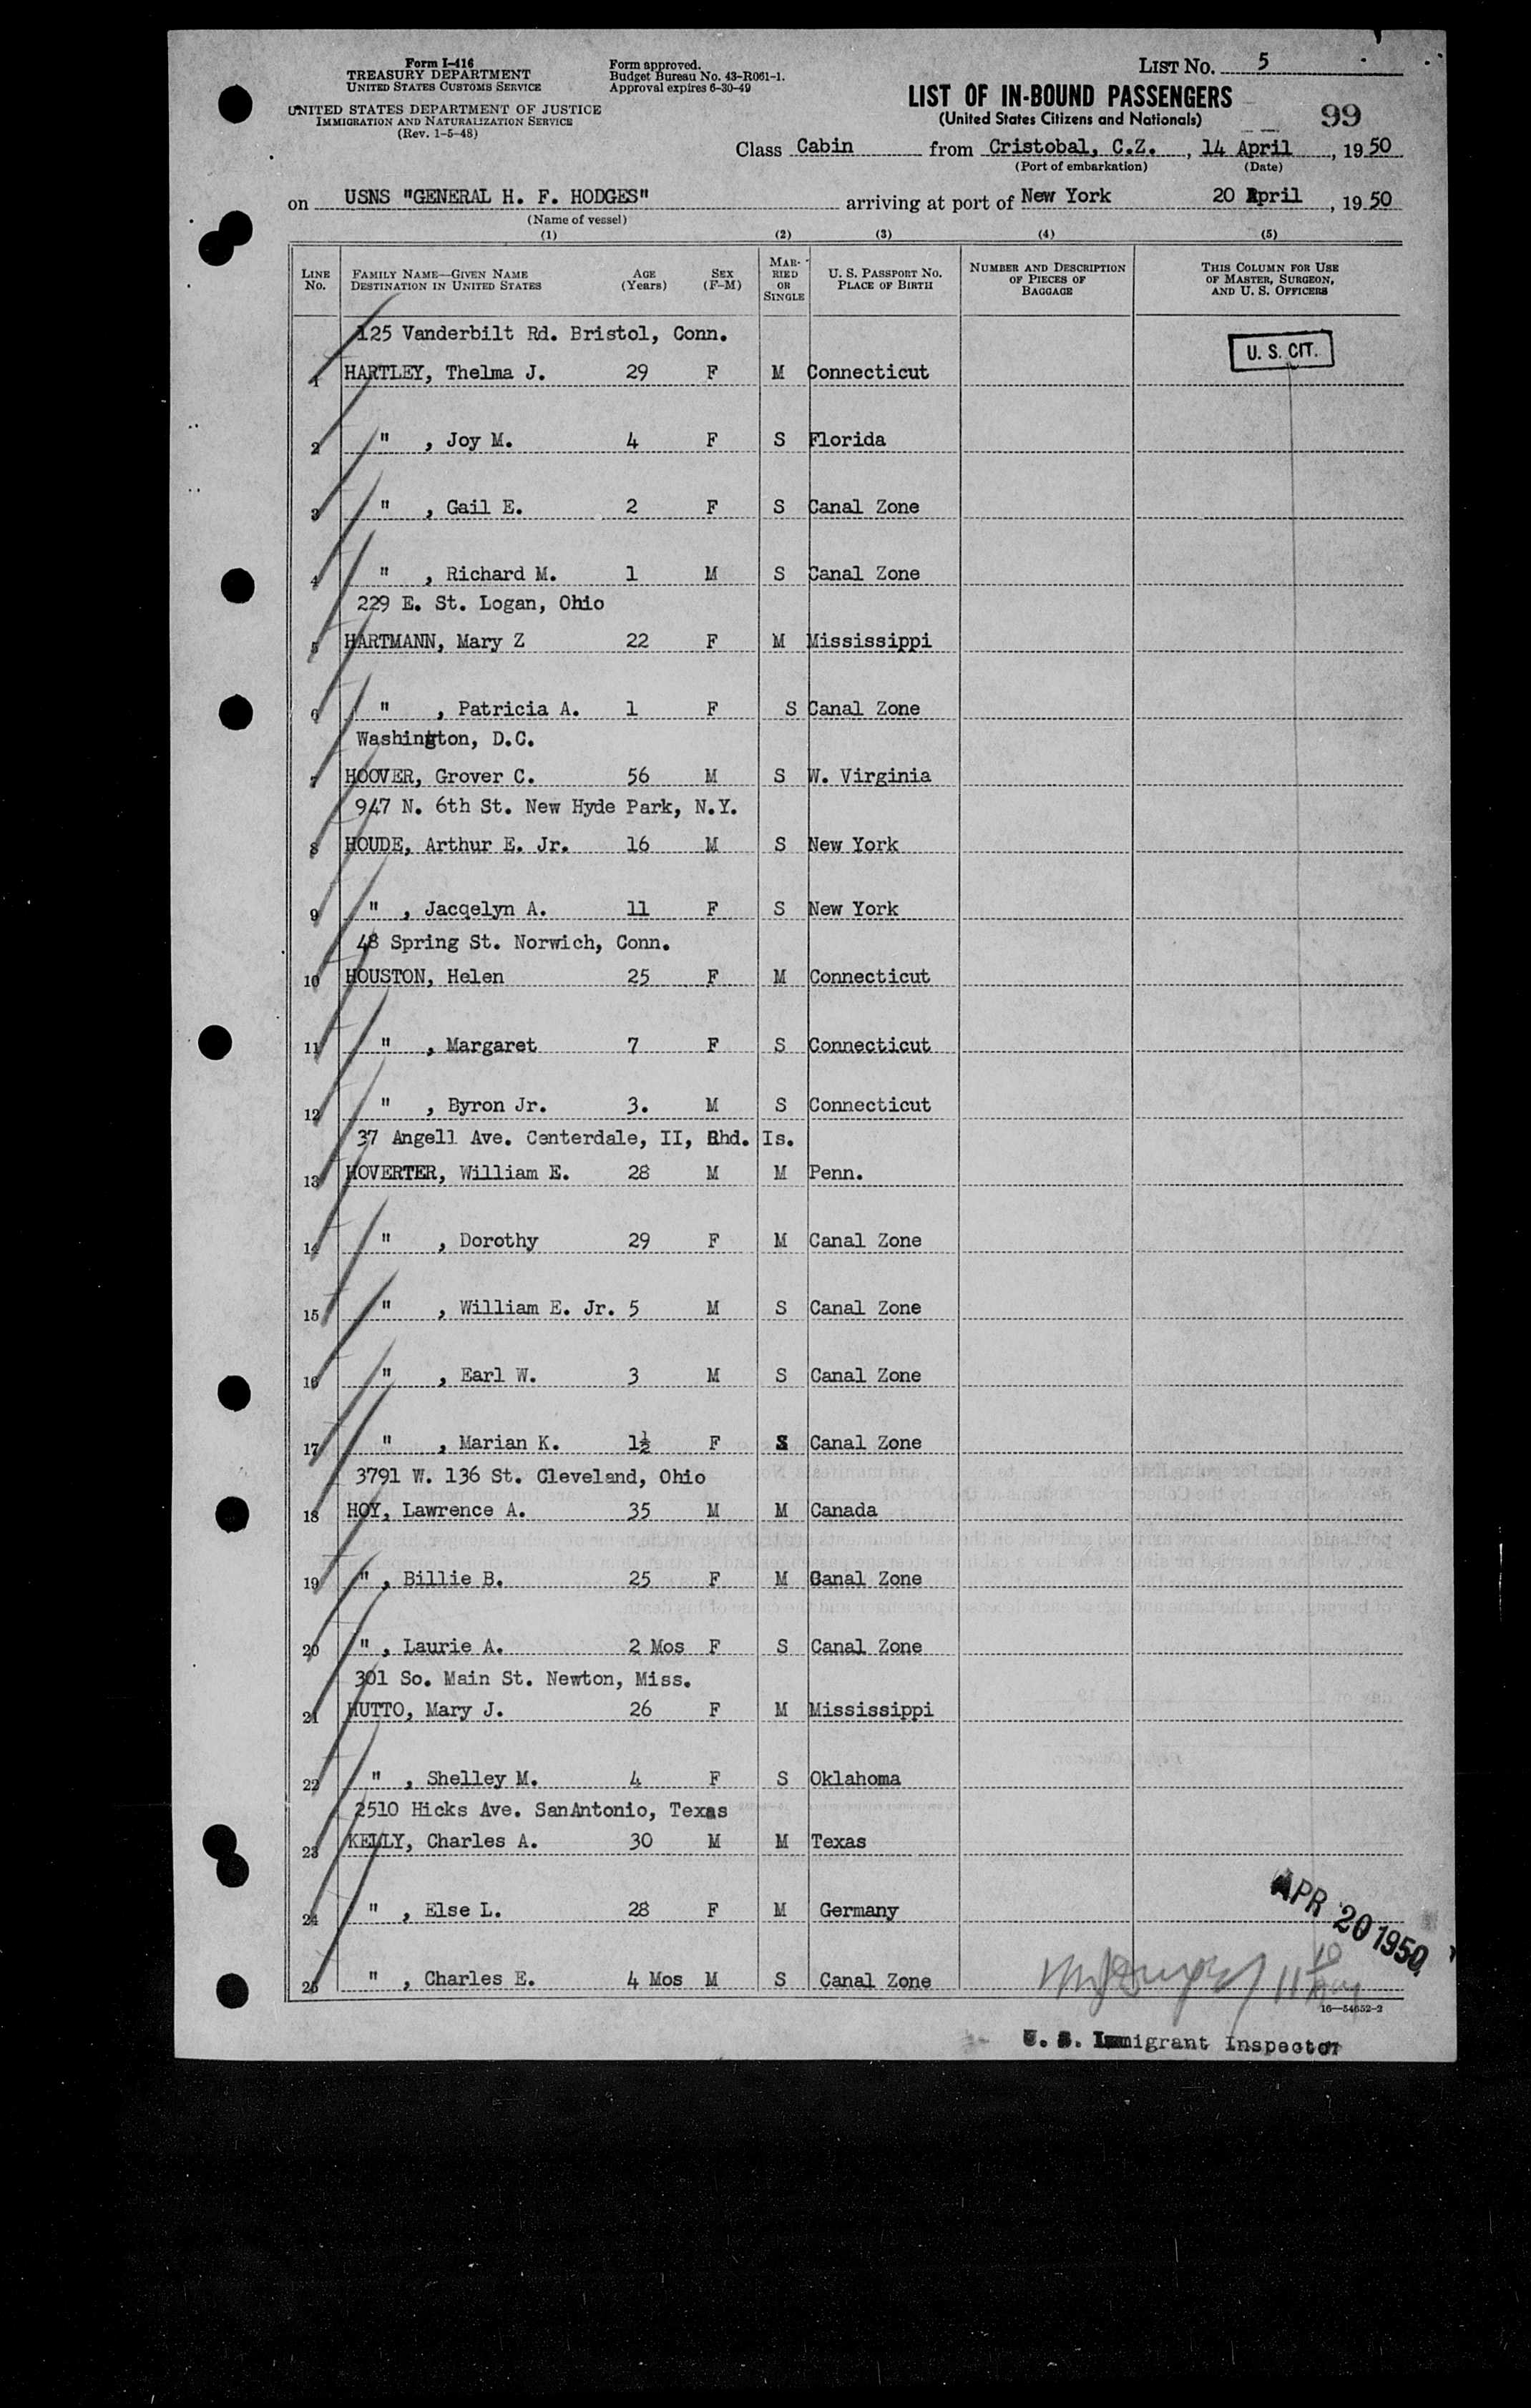 Form I-416
TREASURY DEPARTMENT
UNITED STATES CUSTOMS SERVICE
UNITED STATES DEPARTMENT OF JUSTICE
IMMIGRATION AND NATURALIZATION SERVICE
(Rev. 1-5-48)
Form approved.
Budget Bureau No. 43-R061-1.
Approval expires 6-30-49
LIST NO. 5
LIST OF IN-BOUND PASSENGERS
(United States Citizens and Nationals)
99
Class Cabin from Cristobal, C.Z. , 14 April , 1950
(Port of embarkation) (Date)
on USNS "GENERAL H. F. HODGES" arriving at port of New York 20 April , 1950
(Name of vessel)
(1) (2) (3) (4) (5)
LINE NO. FAMILY NAME—GIVEN NAME DESTINATION IN UNITED STATES AGE (Years) SEX (F-M) MARRIED OR SINGLE U. S. PASSPORT NO. PLACE OF BIRTH NUMBER AND DESCRIPTION OF PIECES OF BAGGAGE THIS COLUMN FOR USE OF MASTER, SURGEON, AND U. S. OFFICERS
125 Vanderbilt Rd. Bristol, Conn.
U. S. CIT.
1 HARTLEY, Thelma J. 29 F M Connecticut
2 " , Joy M. 4 F S Florida
3 " , Gail E. 2 F S Canal Zone
4 " , Richard M. 1 M S Canal Zone
229 E. St. Logan, Ohio
5 HARTMANN, Mary Z 22 F M Mississippi
6 " , Patricia A. 1 F S Canal Zone
Washington, D.C.
7 HOOVER, Grover C. 56 M S W. Virginia
947 N. 6th St. New Hyde Park, N.Y.
8 HOUDE, Arthur E. Jr. 16 M S New York
9 " , Jacqelyn A. 11 F S New York
48 Spring St. Norwich, Conn.
10 HOUSTON, Helen 25 F M Connecticut
11 " , Margaret 7 F S Connecticut
12 " , Byron Jr. 3. M S Connecticut
37 Angell Ave. Centerdale, II, Rhd. Is.
13 HOVERTER, William E. 28 M M Penn.
14 " , Dorothy 29 F M Canal Zone
15 " , William E. Jr. 5 M S Canal Zone
16 " , Earl W. 3 M S Canal Zone
17 " , Marian K. 1½ F S Canal Zone
3791 W. 136 St. Cleveland, Ohio
18 HOY, Lawrence A. 35 M M Canada
19 " , Billie B. 25 F M Canal Zone
20 " , Laurie A. 2 Mos F S Canal Zone
301 So. Main St. Newton, Miss.
21 HUTTO, Mary J. 26 F M Mississippi
22 " , Shelley M. 4 F S Oklahoma
2510 Hicks Ave. SanAntonio, Texas
23 KELLY, Charles A. 30 M M Texas
24 " , Else L. 28 F M Germany
APR 20 1950
25 " , Charles E. 4 Mos M S Canal Zone
16—54652-2
U. S. Immigrant Inspector